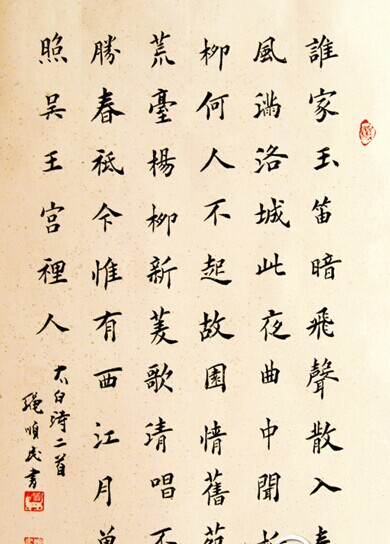 誰家玉笛暗飛聲散入春
風滿洛城此夜曲中聞折
柳何人不起故園情舊苑
荒臺楊柳新菱歌清唱不
勝春祗今惟有西江月曾
照吳王宮裡人
太白詩二首
順民書